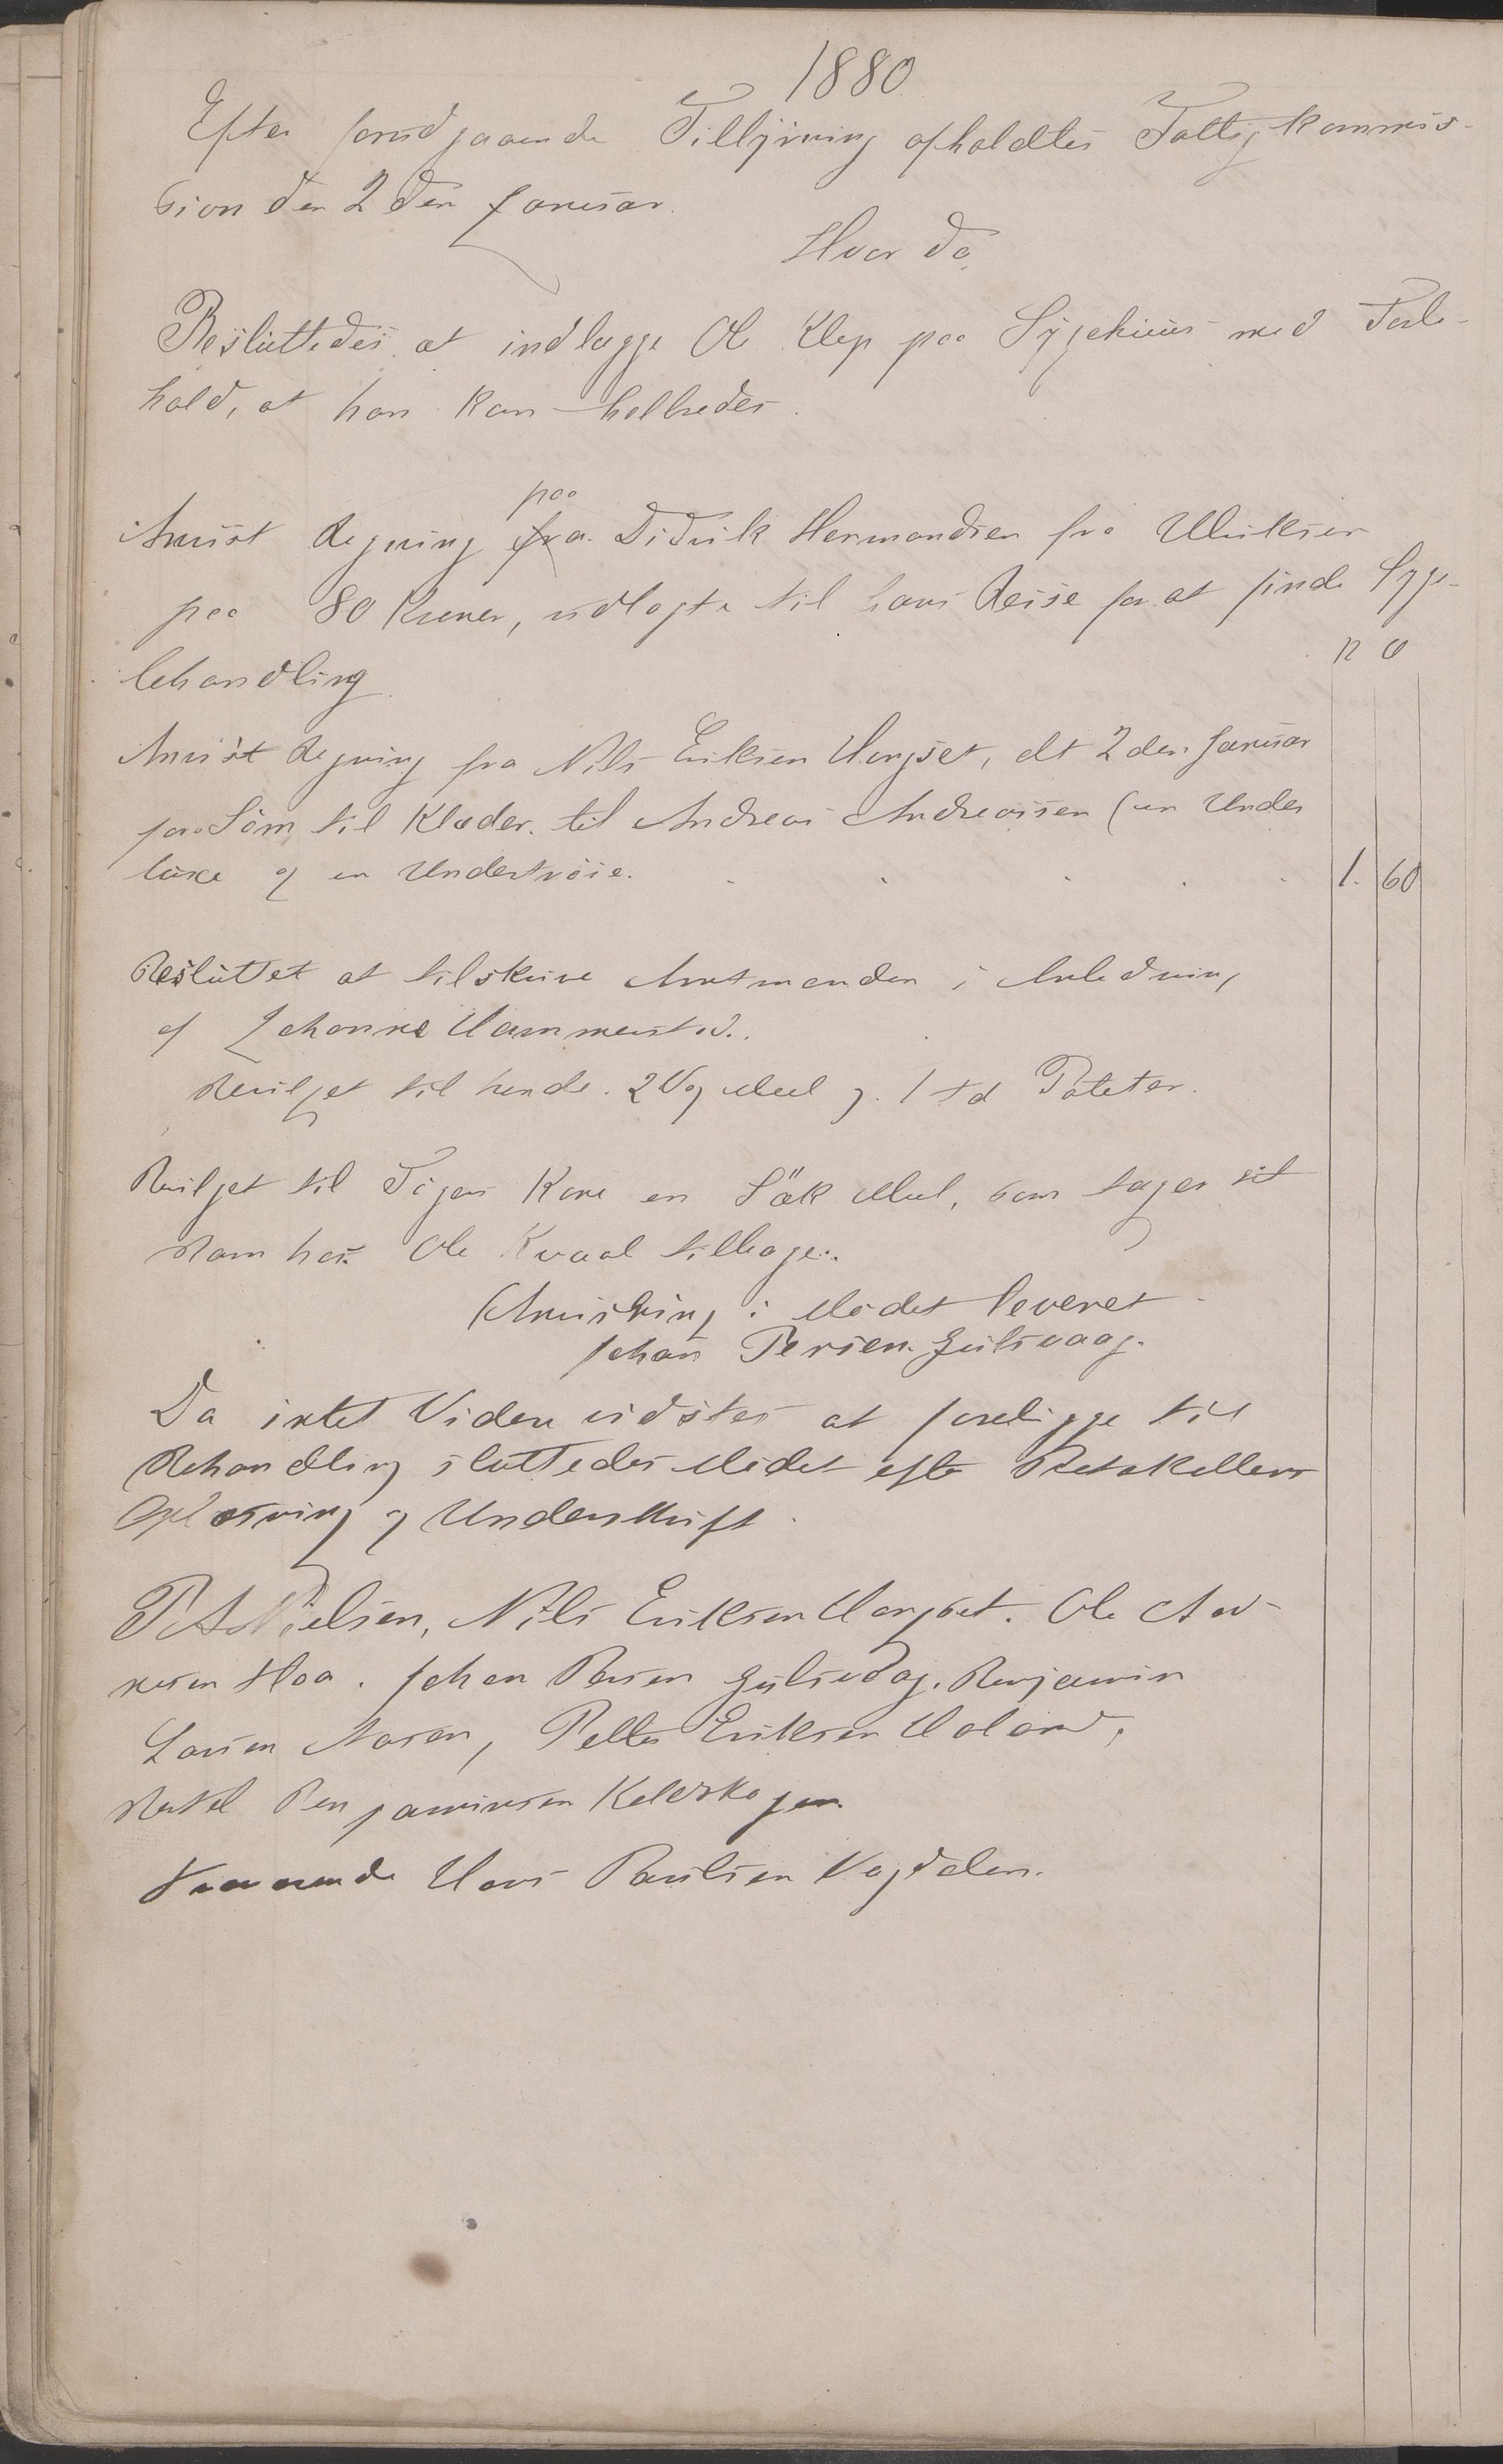 1880
Efter forudgaaende Tillysning afholdtes Fattigkommis-
sion den 2den Januar.
Hvor da
Besluttedes at indlægge Ole Klep paa Sygehuus med Forbe-
hold, at han kan helbredes.
paa
Anvist Regning fra Didrik Hermandsen fra
paa 80 Kroner, udlagte til hans Reise for at finde Syge-
behandling.
K Ø
Anvist Regning fra Nils Eriksen Horset, dt 2den Januar
for Søm til Klæder til Andreas Andreassen (en Under
buxe og en Undertrøie. 1. 60
Besluttet at tilskrive Amtmanden i Anledning
af Johanna Hammerstad.
Bevilget til hende 2 Vog Meel og 1 Td Poteter.
Bevilget til Kone en Sæk Meel, som tager sit
Barn hos Ole Kvaal tilbage.
(Anvisning i Mødet leveret
Johan Persen Gulsvaag.
Da intet Videre vidstes at foreligge til
Behandling sluttedes Mødet efter Protokollens
Oplæsning og Underskrift.
P A Nielsen, Nils Eriksen Horset. Ole And-
resen Hoa. Johan Persen Gulsvaag. Benjamin
Larsen Aasen, Petter Eriksen Holand,
Benjaminsen Keldskogen
Hans Paulsen Vogdalen.